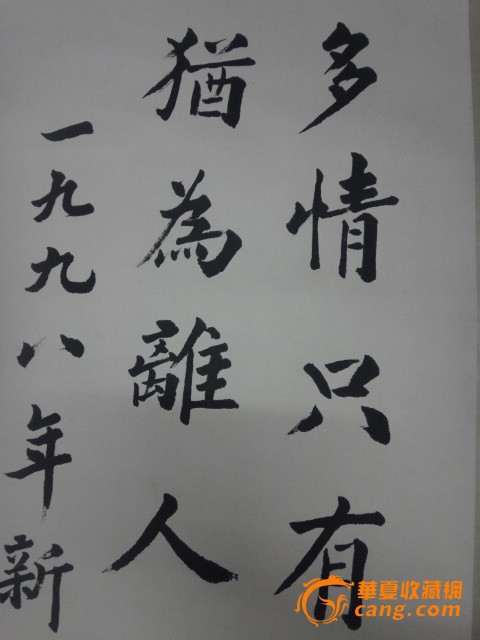 多情只有
猶為離人
一九九八年新
華夏收藏網
cang.com